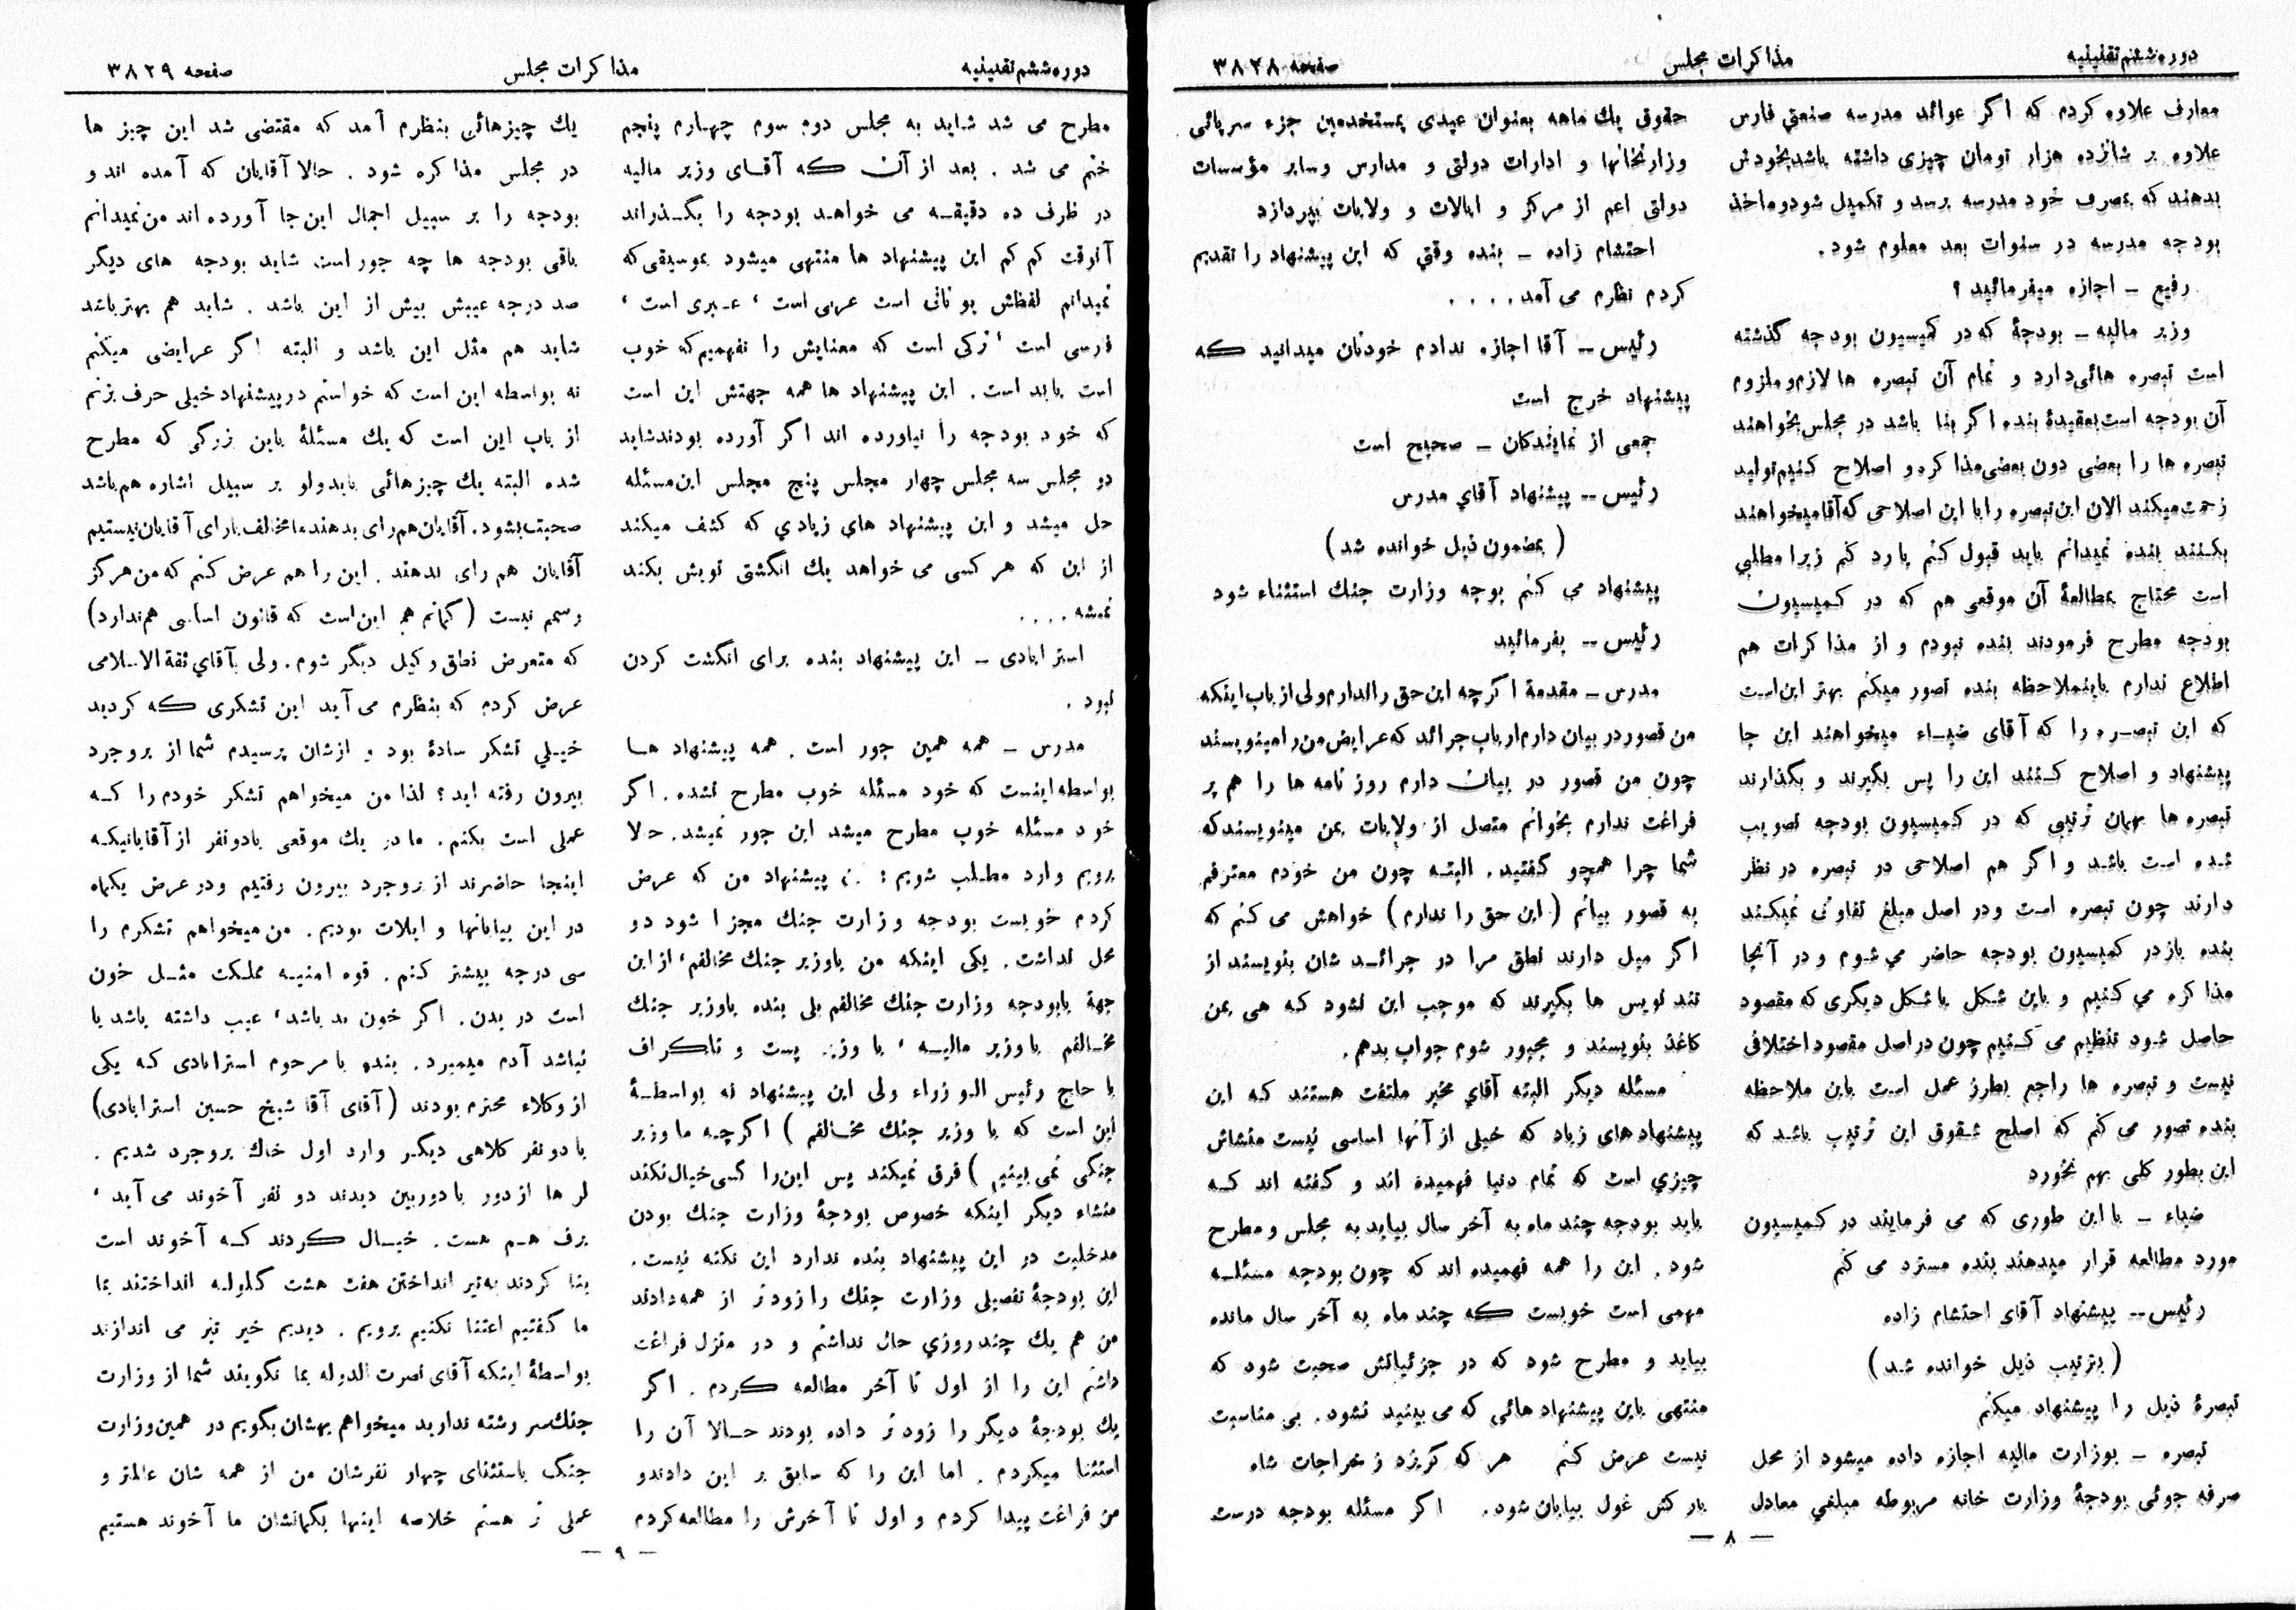 دوره ششم تقنینیه
مذاکرات مجلس
صفحه ۳۸۲۸
معارف علاوه کردم که اگر عوائد مدرسه صنعتی فارس
علاوه بر شانزده هزار تومان چیزی داشته باشد بخودش
بدهند که بمصرف خود مدرسه برسد و تکمیل شود و ماخذ
بودجه مدرسه در سنوات بعد معلوم شود.
رفیع ـ اجازه میفرمائید ؟
وزیر مالیه ـ بودجهٔ که در کمیسیون بودجه گذشته
است تبصره هائی دارد و تمام آن تبصره ها لازم و ملزوم
آن بودجه است بعقیدهٔ بنده اگر بنا باشد در مجلس بخواهند
تبصره ها را بعضی دون بعضی مذاکره و اصلاح کنیم تولید
زحمت میکند الان این تبصره را با این اصلاحی که آقا میخواهند
بکنند بنده نمیدانم باید قبول کنم یا رد کنم زیرا مطلبی
است محتاج بمطالعهٔ آن موقعی هم که در کمیسیون
بودجه مطرح فرمودند بنده نبودم و از مذاکرات هم
اطلاع ندارم باینملاحظه بنده تصور میکنم بهتر این است
که این تبصره را که آقای ضیاء میخواهند این جا
پیشنهاد و اصلاح کنند این را پس بگیرند و بگذارند
تبصره ها بهمان ترتیبی که در کمیسیون بودجه تصویب
شده است باشد و اگر هم اصلاحی در تبصره در نظر
دارند چون تبصره است و در اصل مبلغ تفاوتی نمیکند
بنده باز در کمیسیون بودجه حاضر می شوم و در آنجا
مذاکره می کنیم و باین شکل یا شکل دیگری که مقصود
حاصل شود تنظیم می کنیم چون در اصل مقصود اختلافی
نیست و تبصره ها راجع بطرز عمل است باین ملاحظه
بنده تصور می کنم که اصلح شقوق این ترتیب باشد که
این بطور کلی بهم نخورد
ضیاء ـ با این طوری که می فرمایند در کمیسیون
مورد مطالعه قرار میدهند بنده مسترد می کنم
رئیس ـ پیشنهاد آقای احتشام زاده
( بترتیب ذیل خوانده شد )
تبصرهٔ ذیل را پیشنهاد میکنم
تبصره ـ بوزارت مالیه اجازه داده میشود از محل
صرفه جوئی بودجهٔ وزارت خانه مربوطه مبلغی معادل
حقوق یك ماهه بعنوان عیدی بمستخدمین جزء سرپائی
وزارتخانها و ادارات دولتی و مدارس و سایر مؤسسات
دولتی اعم از مرکز و ایالات و ولایات بپردازد
احتشام زاده ـ بنده وقتی که این پیشنهاد را تقدیم
کردم نظارم می آمد . . . .
رئیس ـ آقا اجازه ندادم خودتان میدانید که
پیشنهاد خرج است
جمعی از نمایندگان ـ صحیح است
رئیس ـ پیشنهاد آقای مدرس
( بمضمون ذیل خوانده شد )
پیشنهاد می کنم بوجه وزارت جنك استثناء شود
رئیس ـ بفرمائید
مدرس ـ مقدمة اگرچه این حق را ندارم ولی از باب اینکه
من قصور در بیان دارم ارباب جرائد که عرایض من را مینویسند
چون من قصور در بیان دارم روزنامه ها را هم پر
فراغت ندارم بخوانم متصل از ولایات بمن مینویسند که
شما چرا همچو گفتید . البته چون من خودم معترفم
به قصور بیانم ( این حق را ندارم ) خواهش می کنم که
اگر میل دارند نطق مرا در جرائد شان بنویسند از
تند نویس ها بگیرند که موجب این نشود که هی بمن
کاغذ بنویسند و مجبور شوم جواب بدهم .
مسئله دیگر البته آقای مخبر ملتفت هستند که این
پیشنهادهای زیاد که خیلی از آنها اساسی نیست منشاش
چیزی است که تمام دنیا فهمیده اند و گفته اند که
باید بودجه چند ماه به آخر سال بیاید به مجلس و مطرح
شود . این را همه فهمیده اند که چون بودجه مسئله
مهمی است خوبست که چند ماه به آخر سال مانده
بیاید و مطرح شود که در جزئیاتش صحبت شود که
منتهی باین پیشنهاد هائی که می بینید نشود . بی مناسبت
نیست عرض کنم هر که گریزد ز خراجات شاه
بارکش غول بیابان شود . اگر مسئله بودجه درست
ـ ۸ ـ
دوره ششم تقنینیه
مذاکرات مجلس
صفحه ۳۸۲۹
مطرح می شد شاید به مجلس دوم سوم چهارم پنجم
ختم می شد . بعد از آن که آقای وزیر مالیه
در ظرف ده دقیقه می خواهد بودجه را بگذراند
آنوقت کم کم این پیشنهاد ها منتهی میشود بموسیقی که
نمیدانم لفظش یونانی است عربی است ، عبری است ،
فارسی است ، ترکی است که معنایش را نفهمیم که خوب
است یا بد است . این پیشنهاد ها همه جهتش این است
که خود بودجه را نیاورده اند اگر آورده بودند شاید
دو مجلس سه مجلس چهار مجلس پنج مجلس این مسئله
حل میشد و این پیشنهاد های زیادی که کشف میکند
از این که هر کسی می خواهد یك انگشتی تویش بکند
نمیشه . . . .
استرابادی ـ این پیشنهاد بنده برای انگشت کردن
نبود .
مدرس ـ همه همین جور است . همه پیشنهاد ها
بواسطه اینست که خود مسئله خوب مطرح نشده . اگر
خود مسئله خوب مطرح میشد این جور نمیشد . حالا
برویم وارد مطلب شویم : پیشنهاد من که عرض
کردم خوبست بودجه وزارت جنك مجزا شود دو
محل نداشت . یکی اینکه من با وزیر جنك مخالفم ، از این
جهة با بودجه وزارت جنك مخالفم بلی بنده با وزیر جنك
مخالفم با وزیر مالیه ، با وزیر پست و تلگراف
با حاج رئیس الوزراء ولی این پیشنهاد نه بواسطهٔ
این است که با وزیر جنك مخالفم ) اگرچه ما وزیر
جنگی نمی بینیم ) فرق نمیکند پس این را کسی خیال نکند
منشاء دیگر اینکه خصوص بودجهٔ وزارت جنك بودن
مدخلیت در این پیشنهاد بنده ندارد این نکته نیست .
این بودجهٔ تفصیلی وزارت جنك را زودتر از همه دادند
من هم یك چند روزی حال نداشتم و در منزل فراغت
داشتم این را از اول تا آخر مطالعه کردم . اگر
یك بودجهٔ دیگر را زودتر داده بودند حالا آن را
استثنا میکردم . اما این را که سابق بر این دادند و
من فراغت پیدا کردم و اول تا آخرش را مطالعه کردم
یك چیزهائی بنظرم آمد که مقتضی شد این چیز ها
در مجلس مذاکره شود . حالا آقایان که آمده اند و
بودجه را بر سبیل اجمال این جا آورده اند من نمیدانم
باقی بودجه ها چه جور است شاید بودجه های دیگر
صد درجه عیبش بیش از این باشد . شاید هم بهتر باشد
شاید هم مثل این باشد و البته اگر عرایضی میکنم
نه بواسطه این است که خواستم در پیشنهاد خیلی حرف بزنم
از باب این است که یك مسئلهٔ باین بزرگی که مطرح
شده البته یك چیزهائی باید ولو بر سبیل اشاره هم باشد
صحبت بشود . آقایان هم رای بدهند ما مخالف با رای آقایان نیستیم
آقایان هم رای بدهند . این را هم عرض کنم که من هرگز
رسمم نیست ( گمانم هم این است که قانون اساسی هم ندارد )
که متعرض نطق وکیل دیگر شوم . ولی بآقای ثقة الاسلامی
عرض کردم که بنظارم می آید این تشکری که کردید
خیلی تشکر سادهٔ بود و ازشان پرسیدم شما از بروجرد
بیرون رفته اید ؟ لذا من میخواهم تشکر خودم را که
عملی است بکنم . ما در یك موقعی با دو نفر از آقایانیکه
اینجا حاضرند از بروجرد بیرون رفتیم و در عرض یکماه
در این بیابانها و ایلات بودیم . من میخواهم تشکرم را
سی درجه بیشتر کنم . قوه امنیه مملکت مثل خون
است در بدن . اگر خون بد باشد ، عیب داشته باشد یا
نباشد آدم میمیرد . بنده با مرحوم استرابادی که یکی
از وکلاء محترم بودند ( آقای آقا شیخ حسین استرابادی )
با دو نفر کلاهی دیگر وارد اول خاك بروجرد شدیم .
لر ها از دور با دوربین دیدند دو نفر آخوند می آید ،
برف هم هست . خیال کردند که آخوند است
بنا کردند به تیر انداختن هفت هشت گلوله انداختند بما
ما گفتیم اعتنا نکنیم برویم . دیدیم خیر تیر می اندازند
بواسطهٔ اینکه آقای نصرت الدوله بما نگویند شما از وزارت
جنك سر رشته ندارید میخواهم بهشان بگویم در همین وزارت
جنگ باستثنای چهار نفرشان من از همه شان عالمتر و
عملی تر هستم خلاصه اینها بگمانشان ما آخوند هستیم
ـ ۹ ـ